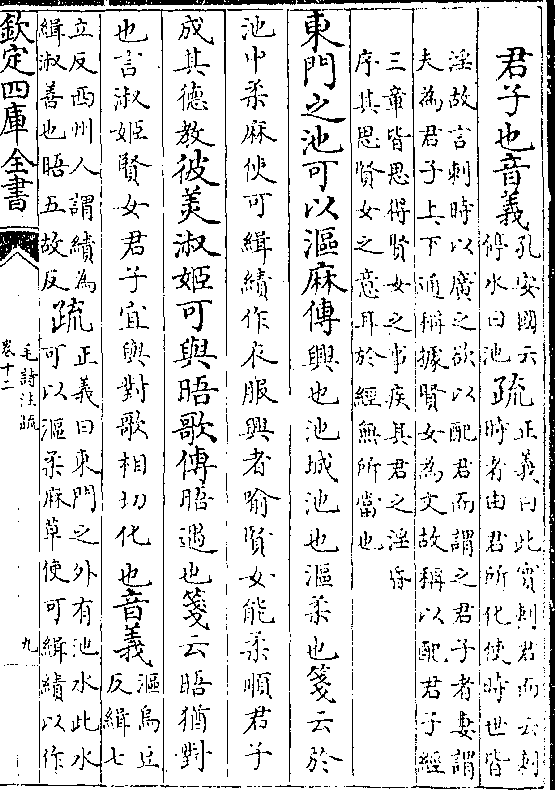 君子也音義孔安國云停水曰池疏正義曰此實刺君而云刺時者由君所化使時世皆
淫故言刺時以廣之欲以配君而謂之君子者妻謂
夫為君子上下通稱據賢女為文故稱以配君子經
三章皆思得賢女之事疾其君之淫
序其思賢女之意耳於經無所當也
東門之池可以漚麻傳興也池城池也漚柔也箋云於
池中柔麻使可緝績作衣服興者喻賢女能柔順君子
成其德教彼美淑姬可與晤歌傳晤遇也箋云晤猶對
也言淑姬賢女君子宜與對歌相切化也音義漚烏豆反緝七
立反西州人謂績為緝淑善也晤五故反疏正義曰東門之外有池水此水可以漚柔麻草使可緝績以作
欽定四庫全書
毛詩注疏
卷十二
九